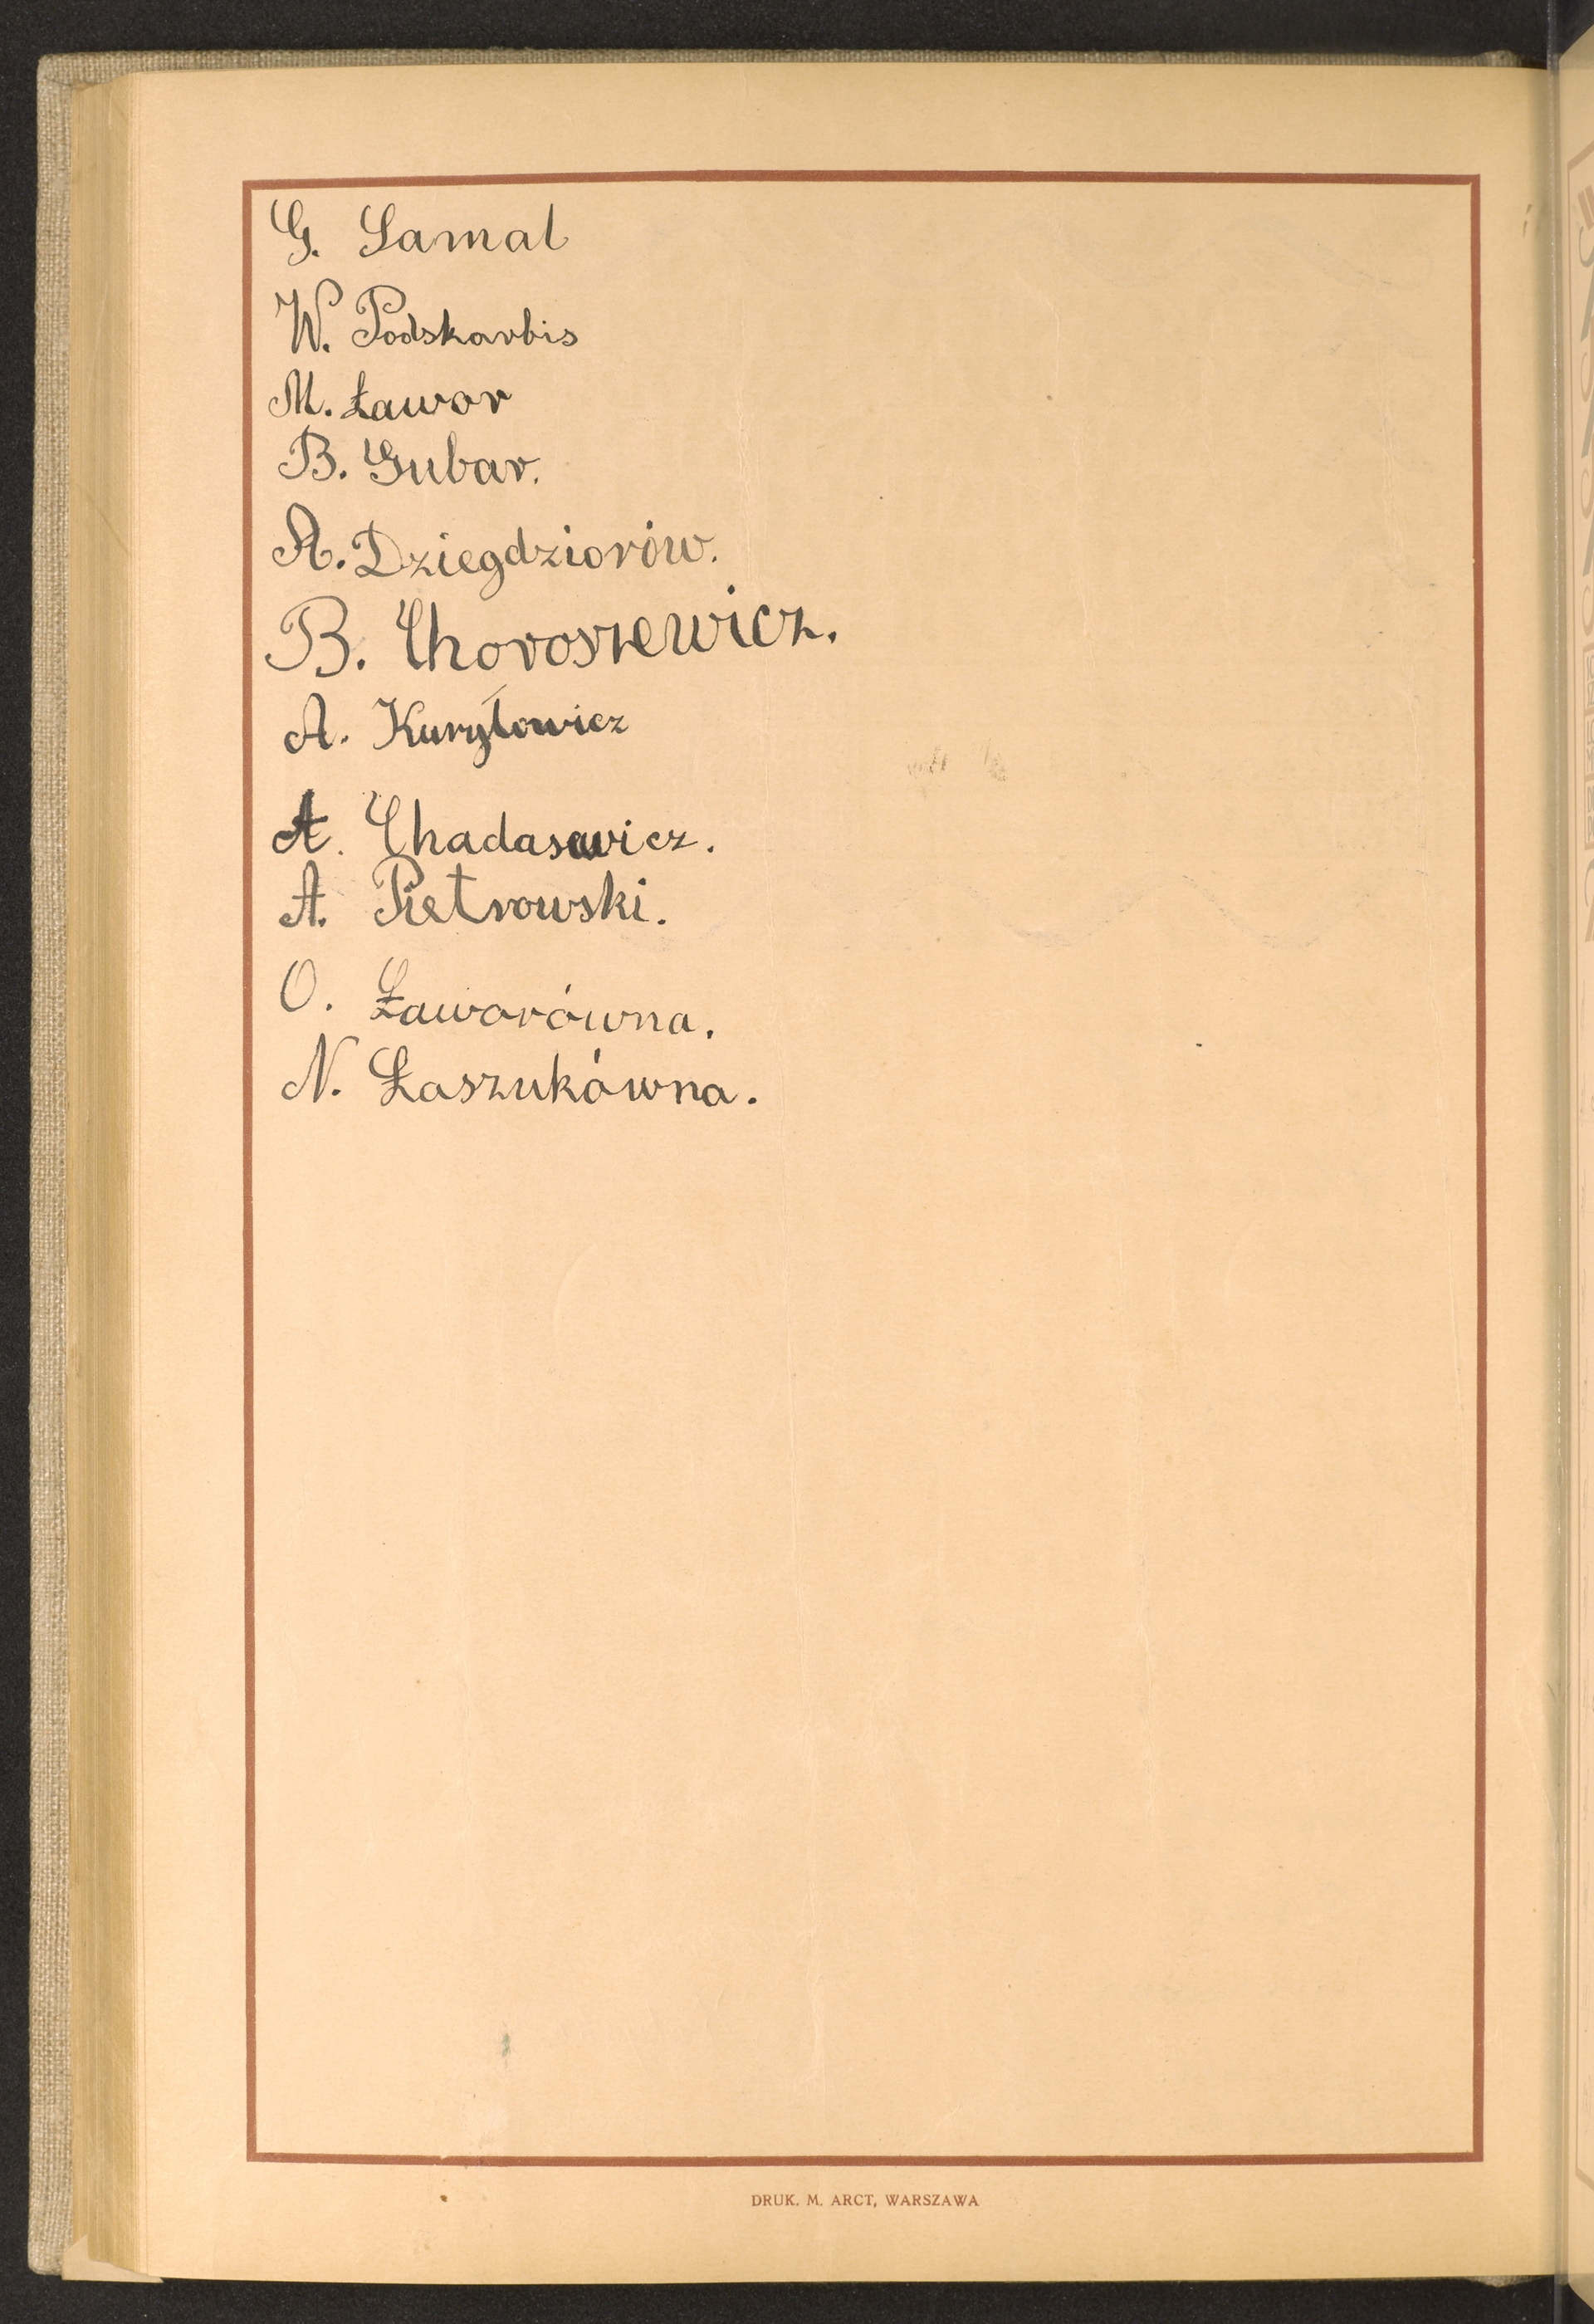 G. Samal
W. Podskarbis
M. Ławor
B. Gubar.
A. Dziegdziorów.
B. Choroszewicz.
A. Kuryłowicz
A. Chadasewicz.
A. Pietrowski.
O. Ławorówna.
N. Łaszukówna.
DRUK. M. ARCT, WARSZAWA